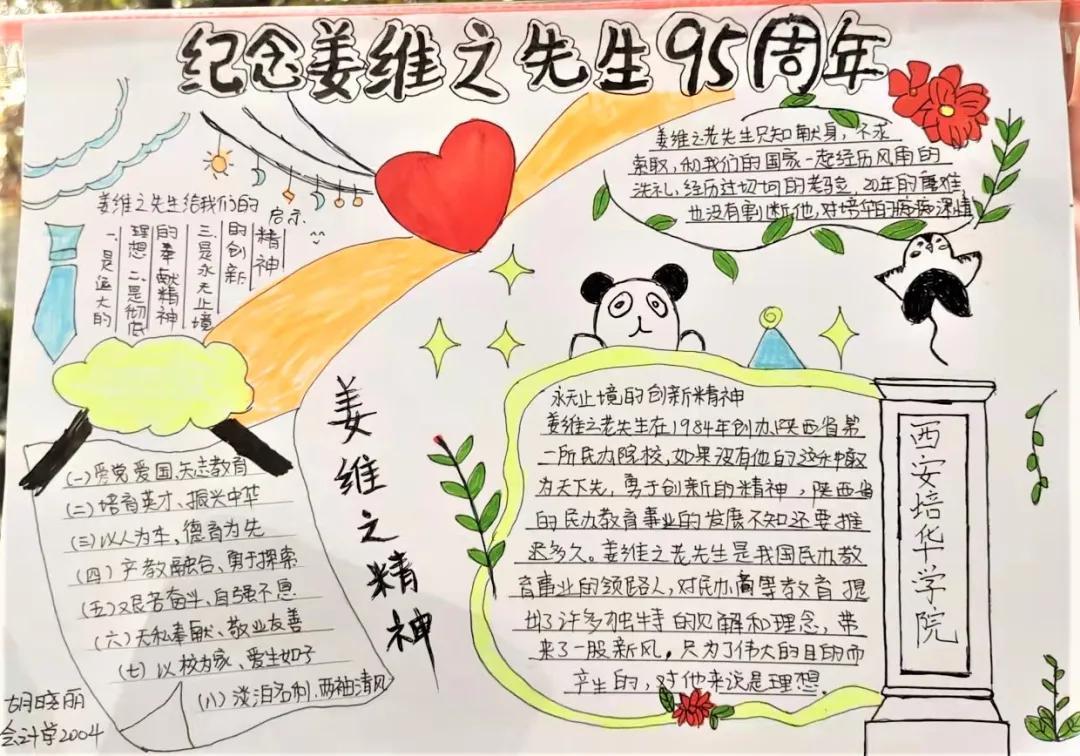 纪念姜维之先生95周年
姜维之老先生只知献身，不求
索取，和我们的国家一起经历风雨的
洗礼，经历过切切的考验，20年的磨难
也没有割断他，对培华的痴痴深情
姜维之先生给我们的启示
一、是远大的
理想 二、是彻底
的奉献精神
三、是永无止境
的创新
精神
姜维之精神
(一)爱党爱国、矢志教育
(二)培育英才、振兴中华
(三)以人为本、德育为先
(四)产教融合、勇于探索
(五)艰苦奋斗、自强不息
(六)无私奉献、敬业友善
(七)以校为家、爱生如子
(八)淡泊名利、两袖清风
胡晓丽
会计学2004
永无止境的创新精神
姜维之老先生在1984年创办陕西省第
一所民办院校，如果没有他的这种敢
为天下先，勇于创新的精神，陕西省
的民办教育事业的发展不知还要推
迟多久。姜维之老先生是我国民办教
育事业的领路人，对民办高等教育提
出了许多独特的见解和理念，带
来了一股新风，只为了伟大的目的而
产生的，对他来说是理想.
西安培华学院